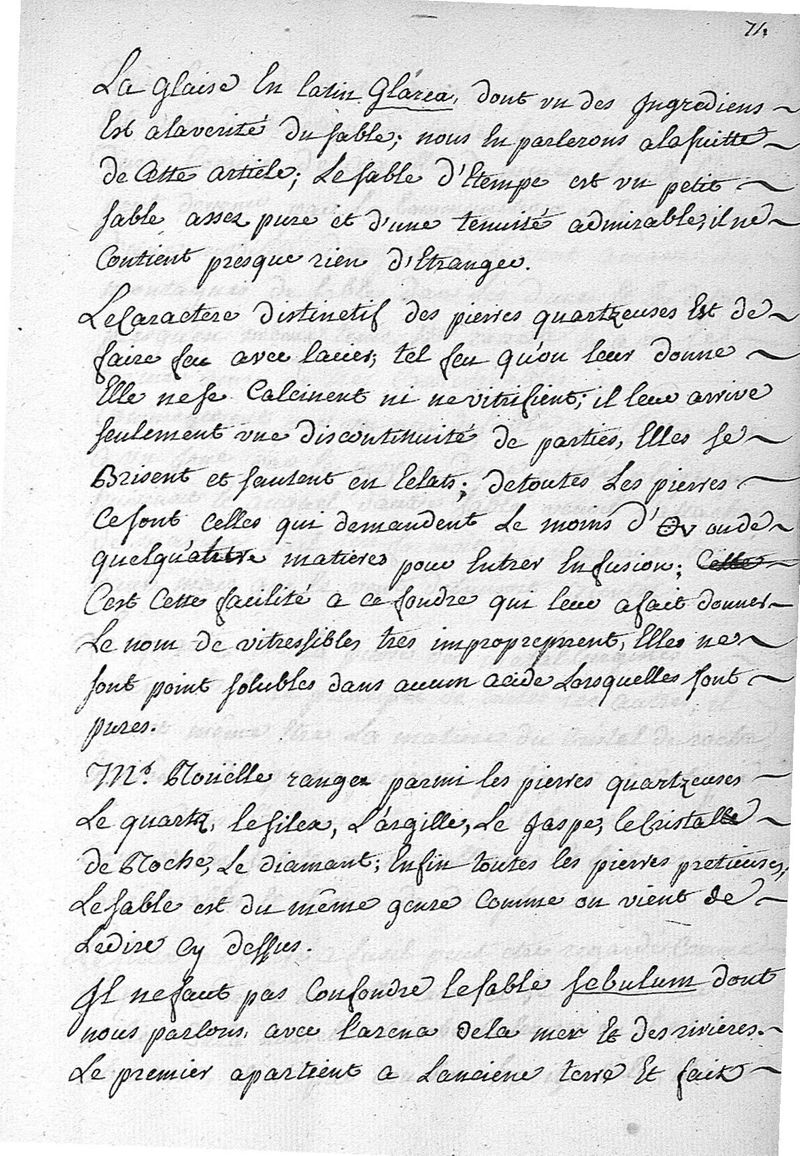 71.
La glaise En latin Glarea, dont un des Ingrediens
Est alaverité du sable; nous En parlerons alasuitte
de Cette article; Le sable d'Etempe est un petit
sable assez pure et d'une tenuité admirable; il ne
Contient presque rien d'Etranger.
Le Caractere distinctif des pierres quartzeuses Est de
faire feu avec lacier; tel feu qu'on leur donne
Elle nese Calcinent ni ne vitrifient; il leur arrive
seulement une discontinuité de parties, Elles se
Brisent et sautent en Eclats; detoutes Les pierres
Cesont celles qui demandent Le moins d' ou de
quelqu'autre matieres pour Entrer En fusion; Cette
C'est Cette facilité a ce fondre qui leur afait donner
Le nom de vitressibles tres improprement, Elles ne
sont point solubles dans aucun acide Lorsquelles sont
pures.
Mr. Roüelle range parmi les pierres quartzeuses
Le quartz, le silex, L'argille, Le Jaspe, le Cristalle
de Roche, Le diamant; Enfin toutes les pierres pretieuses,
Le sable est du même genre Comme on vient de
Ledire cy dessus.
Il nefaut pas Confondre le sable sebulum dont
nous parlons, avec l'arena dela mer Et des rivieres.
Le premier apartient a Lanciene terre Et fait